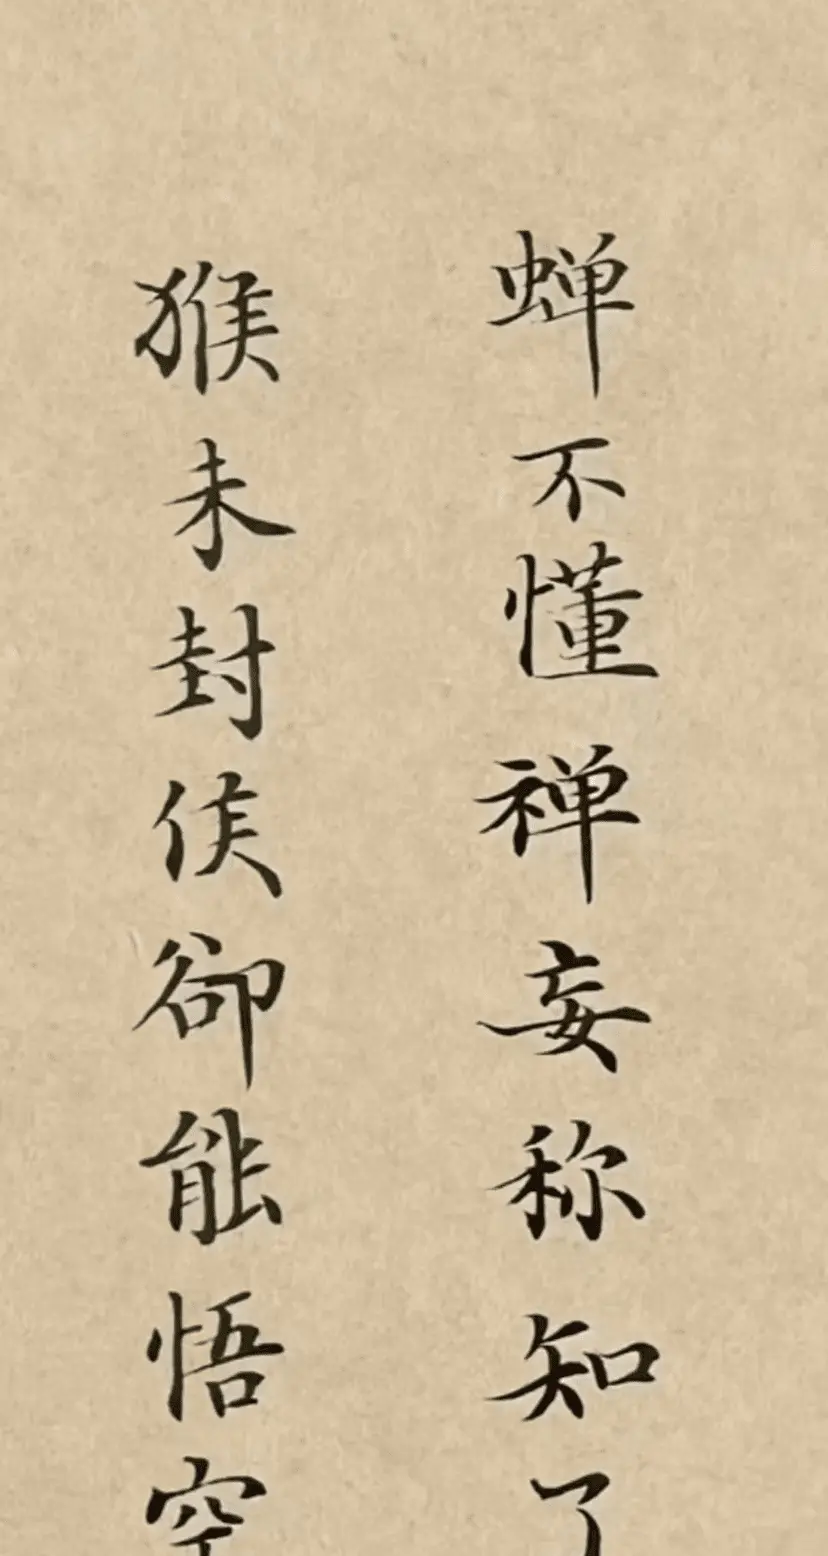 蝉不懂禅妄称知了
猴未封侯卻能悟空